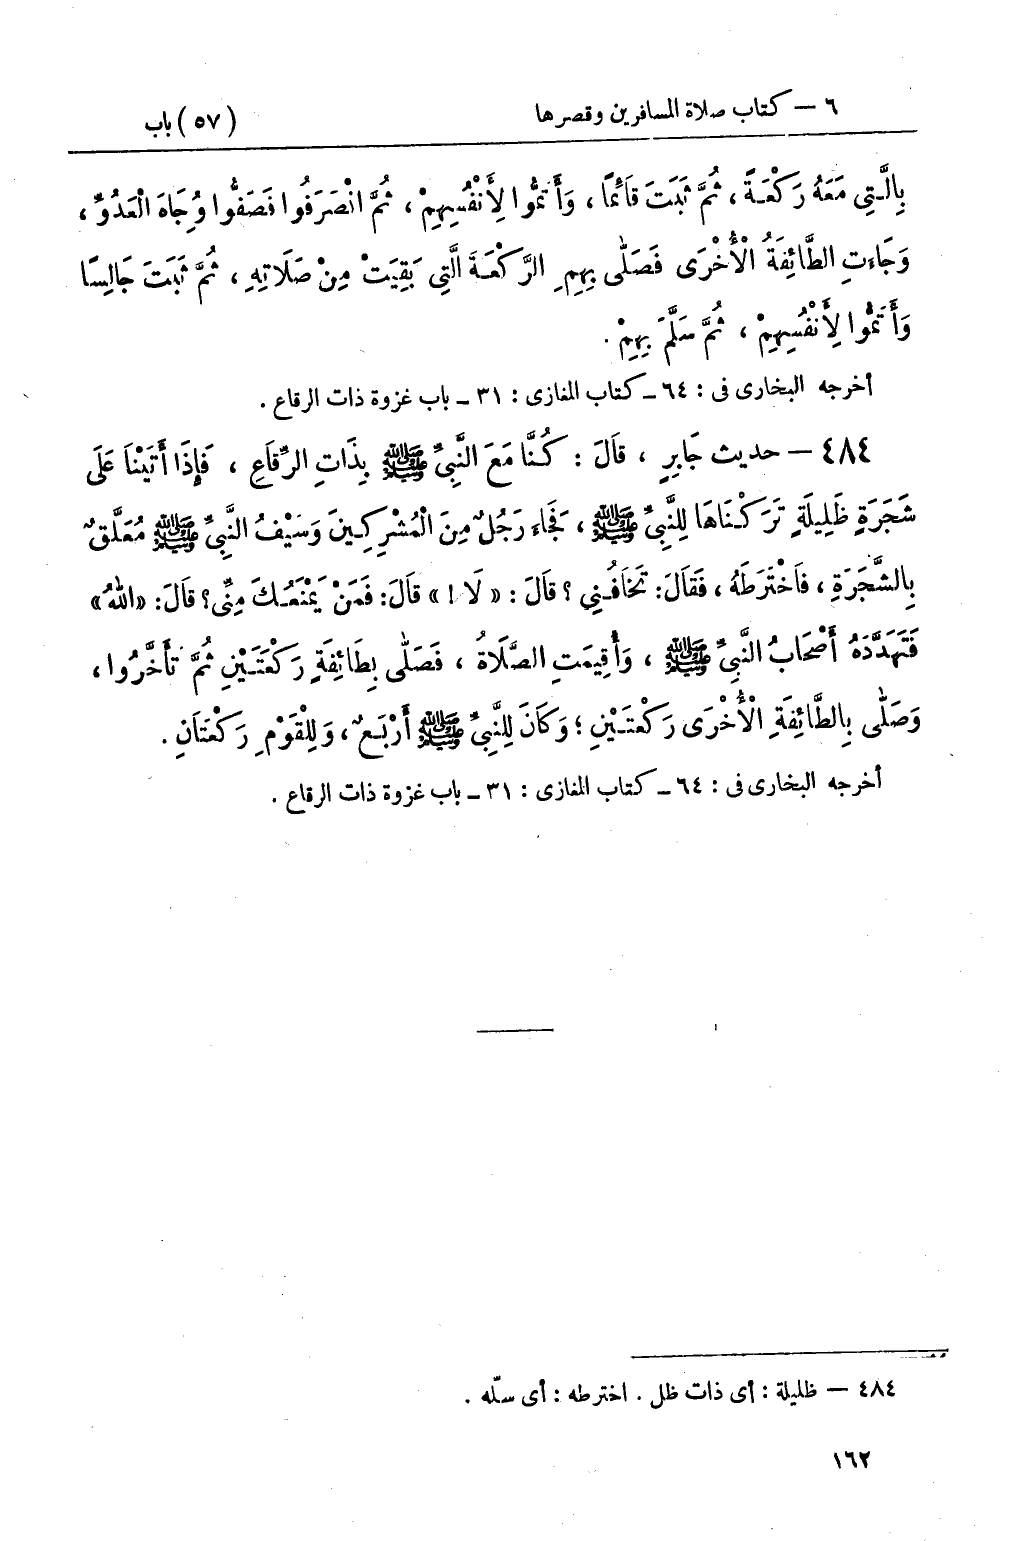 ٦ — كتاب صلاة المسافرين وقصرها (٥٧) باب
بِالَّتِي مَعَهُ رَكْعَةً، ثُمَّ ثَبَتَ قَائمًا، وَأَتَمُّوا لِأَنْفُسِهِمْ، ثُمَّ انْصَرَفُوا فَصَفُّوا وُجَاهَ الْعَدُوِّ،
وَجَاءتِ الطَّائِفَةُ الْأُخْرَى فَصَلَّى بِهِمِ الرَّكْعَةَ الَّتِي بَقِيَتْ مِنْ صَلَاتِهِ، ثُمَّ ثَبَتَ جَالِسًا
وَأَتَمُّوا لِأَنْفُسِهِمْ، ثُمَّ سَلَّمَ بِهِمْ.
أخرجه البخارى فى : ٦٤ ـ كتاب المغازى : ٣١ ـ باب غزوة ذات الرقاع .
٤٨٤ — حديث جَابِرٍ، قَالَ : كُنَّا مَعَ النَّبِيِّ ﷺ بِذَاتِ الرِّقَاعِ، فَإِذَا أَتَيْنَا عَلَى
شَجَرَةٍ ظَلِيلَةٍ تَرَكْنَاهَا لِلنَّبِيِّ ﷺ، فَجَاء رَجُلٌ مِنَ الْمُشْرِكِينَ وَسَيْفُ النَّبِيِّ ﷺ مُعَلَّقٌ
بِالشَّجَرَةِ، فَاخْتَرَطَهُ، فَقَالَ: تَخَافُنِي ؟ قَالَ : « لَا ! » قَالَ: فَمَنْ يَمْنَعُكَ مِنِّي؟ قَالَ: «اللهُ»
فَتَهَدَّدَهُ أَصْحَابُ النَّبِيِّ ﷺ، وَأُقِيمَتِ الصَّلَاةُ، فَصَلَّى بِطَائِفَةٍ رَكْعَتَيْنِ ثُمَّ تَأَخَّرُوا،
وَصَلَّى بِالطَّائِفَةِ الْأُخْرَى رَكْعَتَيْنِ؛ وَكَانَ لِلنَّبِيِّ ﷺ أَرْبَعٌ، وَلِلْقَوْمِ رَكْعَتَانِ .
أخرجه البخارى فى : ٦٤ ـ كتاب المغازى : ٣١ ـ باب غزوة ذات الرقاع .
٤٨٤ — ظليلة : أى ذات ظل . اخترطه : أى سلّه .
١٦٢